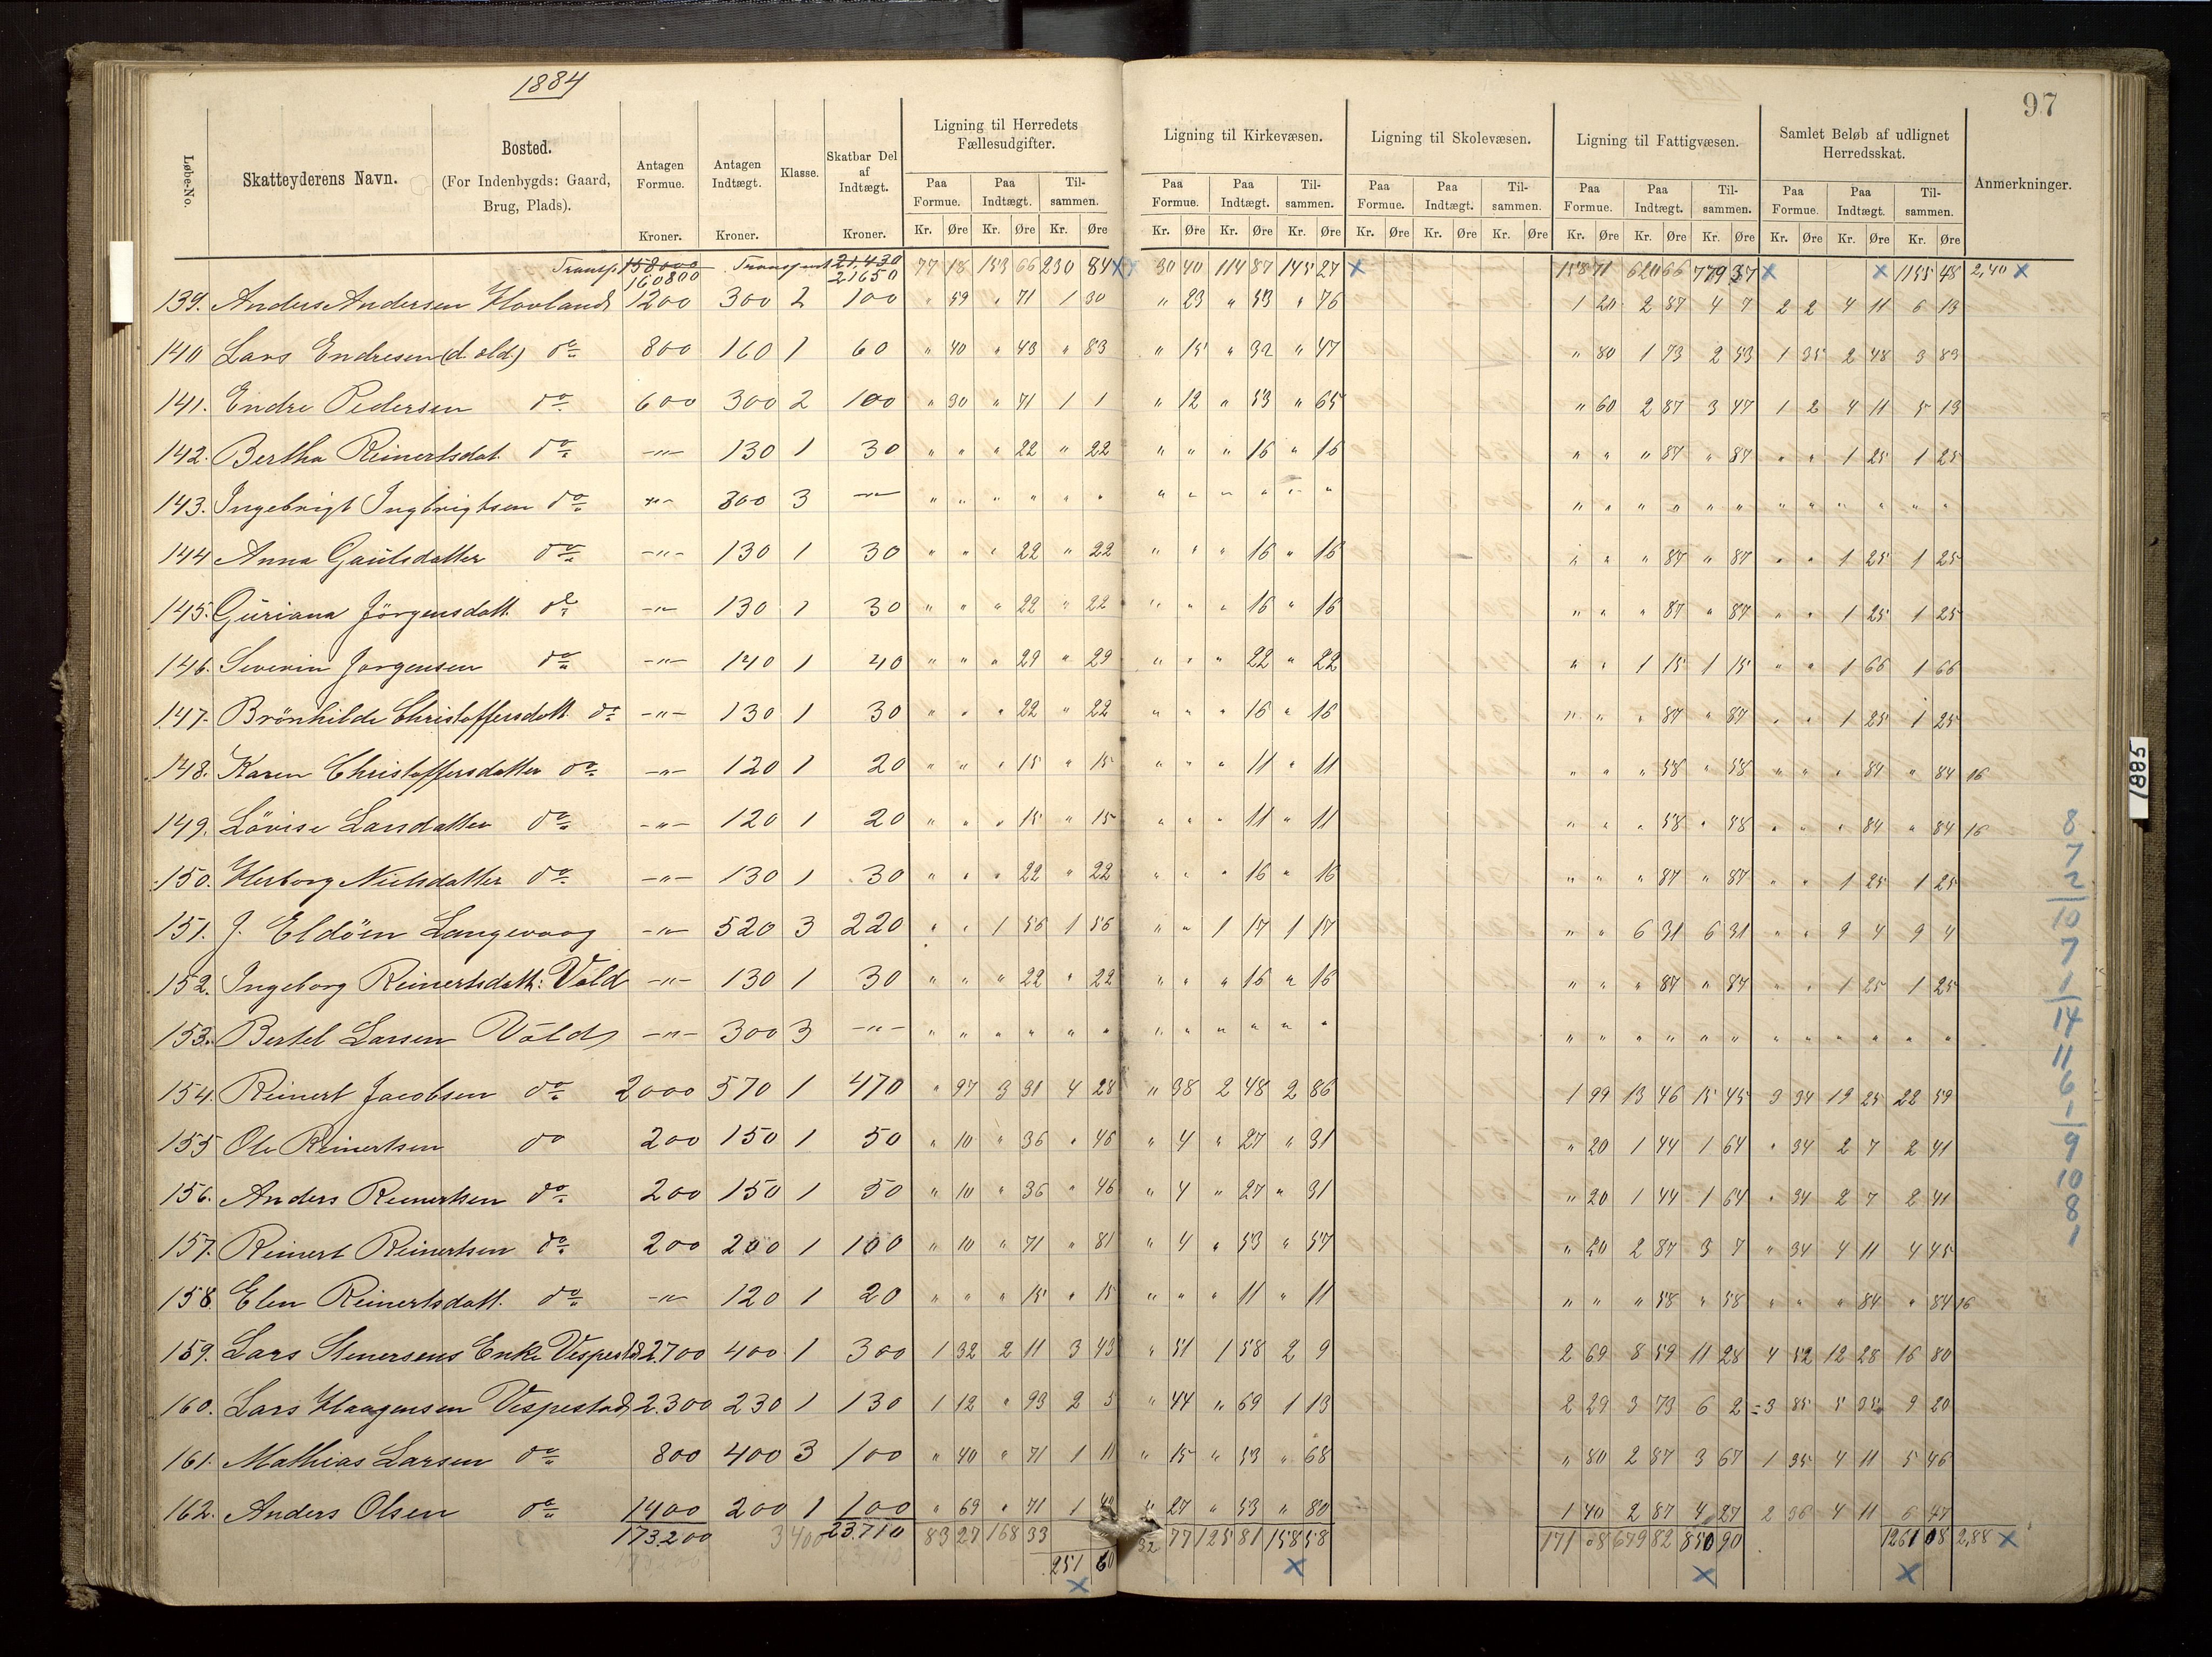 1884
97
Løbe-No. Skatteyderens Navn. Bosted. (For Indenbygds: Gaard, Brug, Plads). Antagen Formue. Kroner. Antagen Indtægt. Kroner. Klasse. Skatbar Del af Indtægt. Kroner. Ligning til Herredets Fællesudgifter. Ligning til Kirkevæsen. Ligning til Skolevæsen. Ligning til Fattigvæsen. Samlet Beløb af udlignet Herredsskat. Anmerkninger.
Paa Formue. Paa Indtægt. Til-sammen. Paa Formue. Paa Indtægt. Til-sammen. Paa Formue. Paa Indtægt. Til-sammen. Paa Formue. Paa Indtægt. Til-sammen. Paa Formue. Paa Indtægt. Til-sammen.
Kr. Øre Kr. Øre Kr. Øre Kr. Øre Kr. Øre Kr. Øre Kr. Øre Kr. Øre Kr. Øre Kr. Øre Kr. Øre Kr. Øre Kr. Øre Kr. Øre Kr. Øre
Transp 158000 Transport 21430 77 18 153 66 230 84 x 30 40 114 87 145 27 x 158 71 620 66 779 37 x x 1155 48 2,40 x
160800 21650
139. Anders Andersen Hovland 1200 300 2 100 " 59 " 71 1 30 " 23 " 53 " 76 1 20 2 87 4 7 2 2 4 11 6 13
140 Lars Endresen (d. old.) do 800 160 1 60 " 40 " 43 " 83 " 15 " 32 " 47 " 80 1 73 2 53 1 35 2 48 3 83
141. Endre Pedersen do 600 300 2 100 " 30 " 71 1 1 " 12 " 53 " 65 " 60 2 87 3 47 1 2 4 11 5 13
142. Bertha Reinertsdat. do -"- 130 1 30 " " " 22 " 22 " " " 16 " 16 " " " 87 " 87 " " 1 25 1 25
143. Ingebrigt Ingbrigtsen do -"- 300 3 -"- " " " " " " " " " " " " " " " " " " " " " " " "
144 Anna Gautsdatter do -"- 130 1 30 " " " 22 " 22 " " " 16 " 16 " " " 87 " 87 " " 1 25 1 25
145. Guriana Jörgensdatt. do -"- 130 1 30 " " " 22 " 22 " " " 16 " 16 " " " 87 " 87 " " 1 25 1 25
146. Severin Jorgensen do -"- 140 1 40 " " " 29 " 29 " " " 22 " 22 " " 1 15 1 15 " " 1 66 1 66
147. Brönhilde Christoffersdatt. do -"- 130 1 30 " " " 22 " 22 " " " 16 " 16 " " " 87 " 87 " " 1 25 1 25
148. Karen Christoffersdatter do -"- 120 1 20 " " " 15 " 15 " " " 11 " 11 " " " 58 " 58 " " " 84 " 84 16
149. Lovise Larsdatter do -"- 120 1 20 " " " 15 " 15 " " " 11 " 11 " " " 58 " 58 " " " 84 " 84 16
150. Herborg Nielsdatter do -"- 130 1 30 " " " 22 " 22 " " " 16 " 16 " " " 87 " 87 " " 1 25 1 25
151. J. Eldöen Langevaag -"- 520 3 220 " " 1 56 1 56 " " 1 17 1 17 " " 6 31 6 31 " " 9 4 9 4
152. Ingeborg Reinertsdatt: Vold -"- 130 1 30 " " " 22 " 22 " " " 16 " 16 " " " 87 " 87 " " 1 25 1 25
153. Bertel Larsen Vold -"- 300 3 -"- " " " " " " " " " " " " " " " " " " " " " " " "
154. Reinert Jacobsen do 2000 570 1 470 " 97 3 31 4 28 " 38 2 48 2 86 1 99 13 46 15 45 3 34 19 25 22 59
155 Ole Reinertsen do 200 150 1 50 " 10 " 36 " 46 " 4 " 27 " 31 " 20 1 44 1 64 " 34 2 7 2 41
156. Anders Reinertsen do 200 150 1 50 " 10 " 36 " 46 " 4 " 27 " 31 " 20 1 44 1 64 " 34 2 7 2 41
157. Reinert Reinertsen do 200 200 1 100 " 10 " 71 " 81 " 4 " 53 " 57 " 20 2 87 3 7 " 34 4 11 4 45
158 Elen Reinertsdatt. do -"- 120 1 20 " " " 15 " 15 " " " 11 " 11 " " " 58 " 58 " " " 84 " 84 16
159. Lars Stenersens Enke Vespestd 2700 400 1 300 1 32 2 11 3 43 " 51 1 58 2 9 2 69 8 59 11 28 4 52 12 28 16 80
160. Lars Haagensen Vespestad 2300 230 1 130 1 12 " 93 2 5 " 44 " 69 1 13 2 29 3 73 6 2 = 3 85 5 35 9 20
161. Mathias Larsen do 800 400 3 100 " 40 " 71 1 11 " 15 " 53 " 68 " 80 2 87 3 67 1 35 4 11 5 46
162. Anders Olsen do 1400 200 1 100 " 69 " 71 1 40 " 27 " 53 " 80 1 40 2 87 4 27 2 36 4 11 6 47
173.200 3400 23.710 83 27 168 33 32 77 125 81 158 58 171 08 679 82 850 90 1261 08 2,88 x
251 60
x x x x
1885
8
7
2
10
7
1
14
11
6
1
9
10
8
1